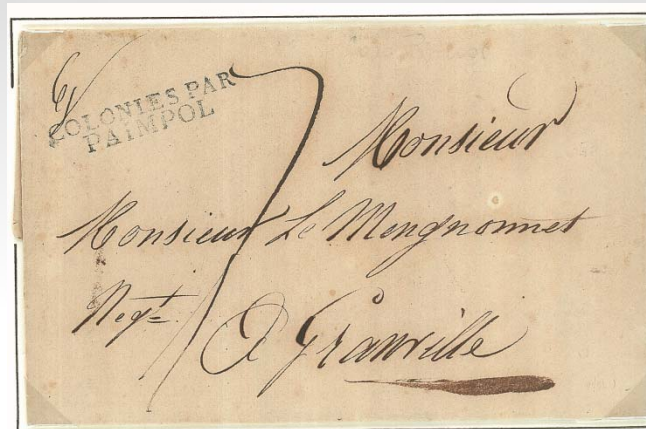 COLONIES PAR
PAIMPOL
7
Monsieur
Monsieur Le Mengnonnet
Negt
A Granville